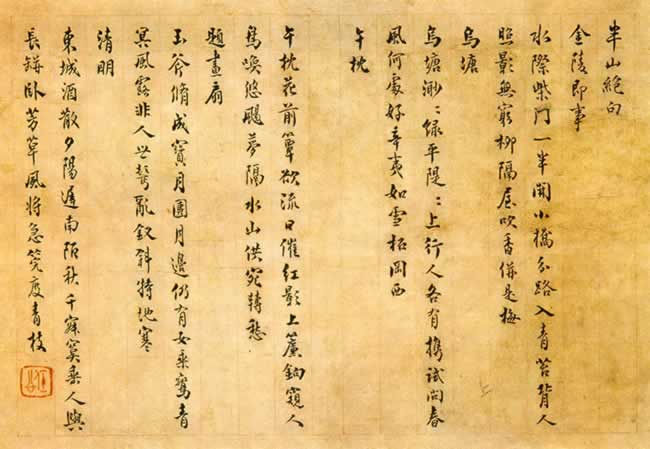 半山絕句
金陵即事
水際柴門一半開小橋分路入青苔背人
照影無窮柳隔屋吹香併是梅
烏塘
烏塘渺〻綠平隄〻上行人各有攜試問春
風何處好辛夷如雪柘岡西
午枕
午枕花前簟欲流日催紅影上簾鉤窺人
鳥喚悠颺夢隔水山供宛轉愁
題畫扇
玉斧脩成寶月團月邊仍有女乘鸞青
冥風露非人世鬢亂釵斜特地寒
清明
東城酒散夕陽遲南陌秋千寂寞垂人與
長缾臥芳草風將急筦度青枝